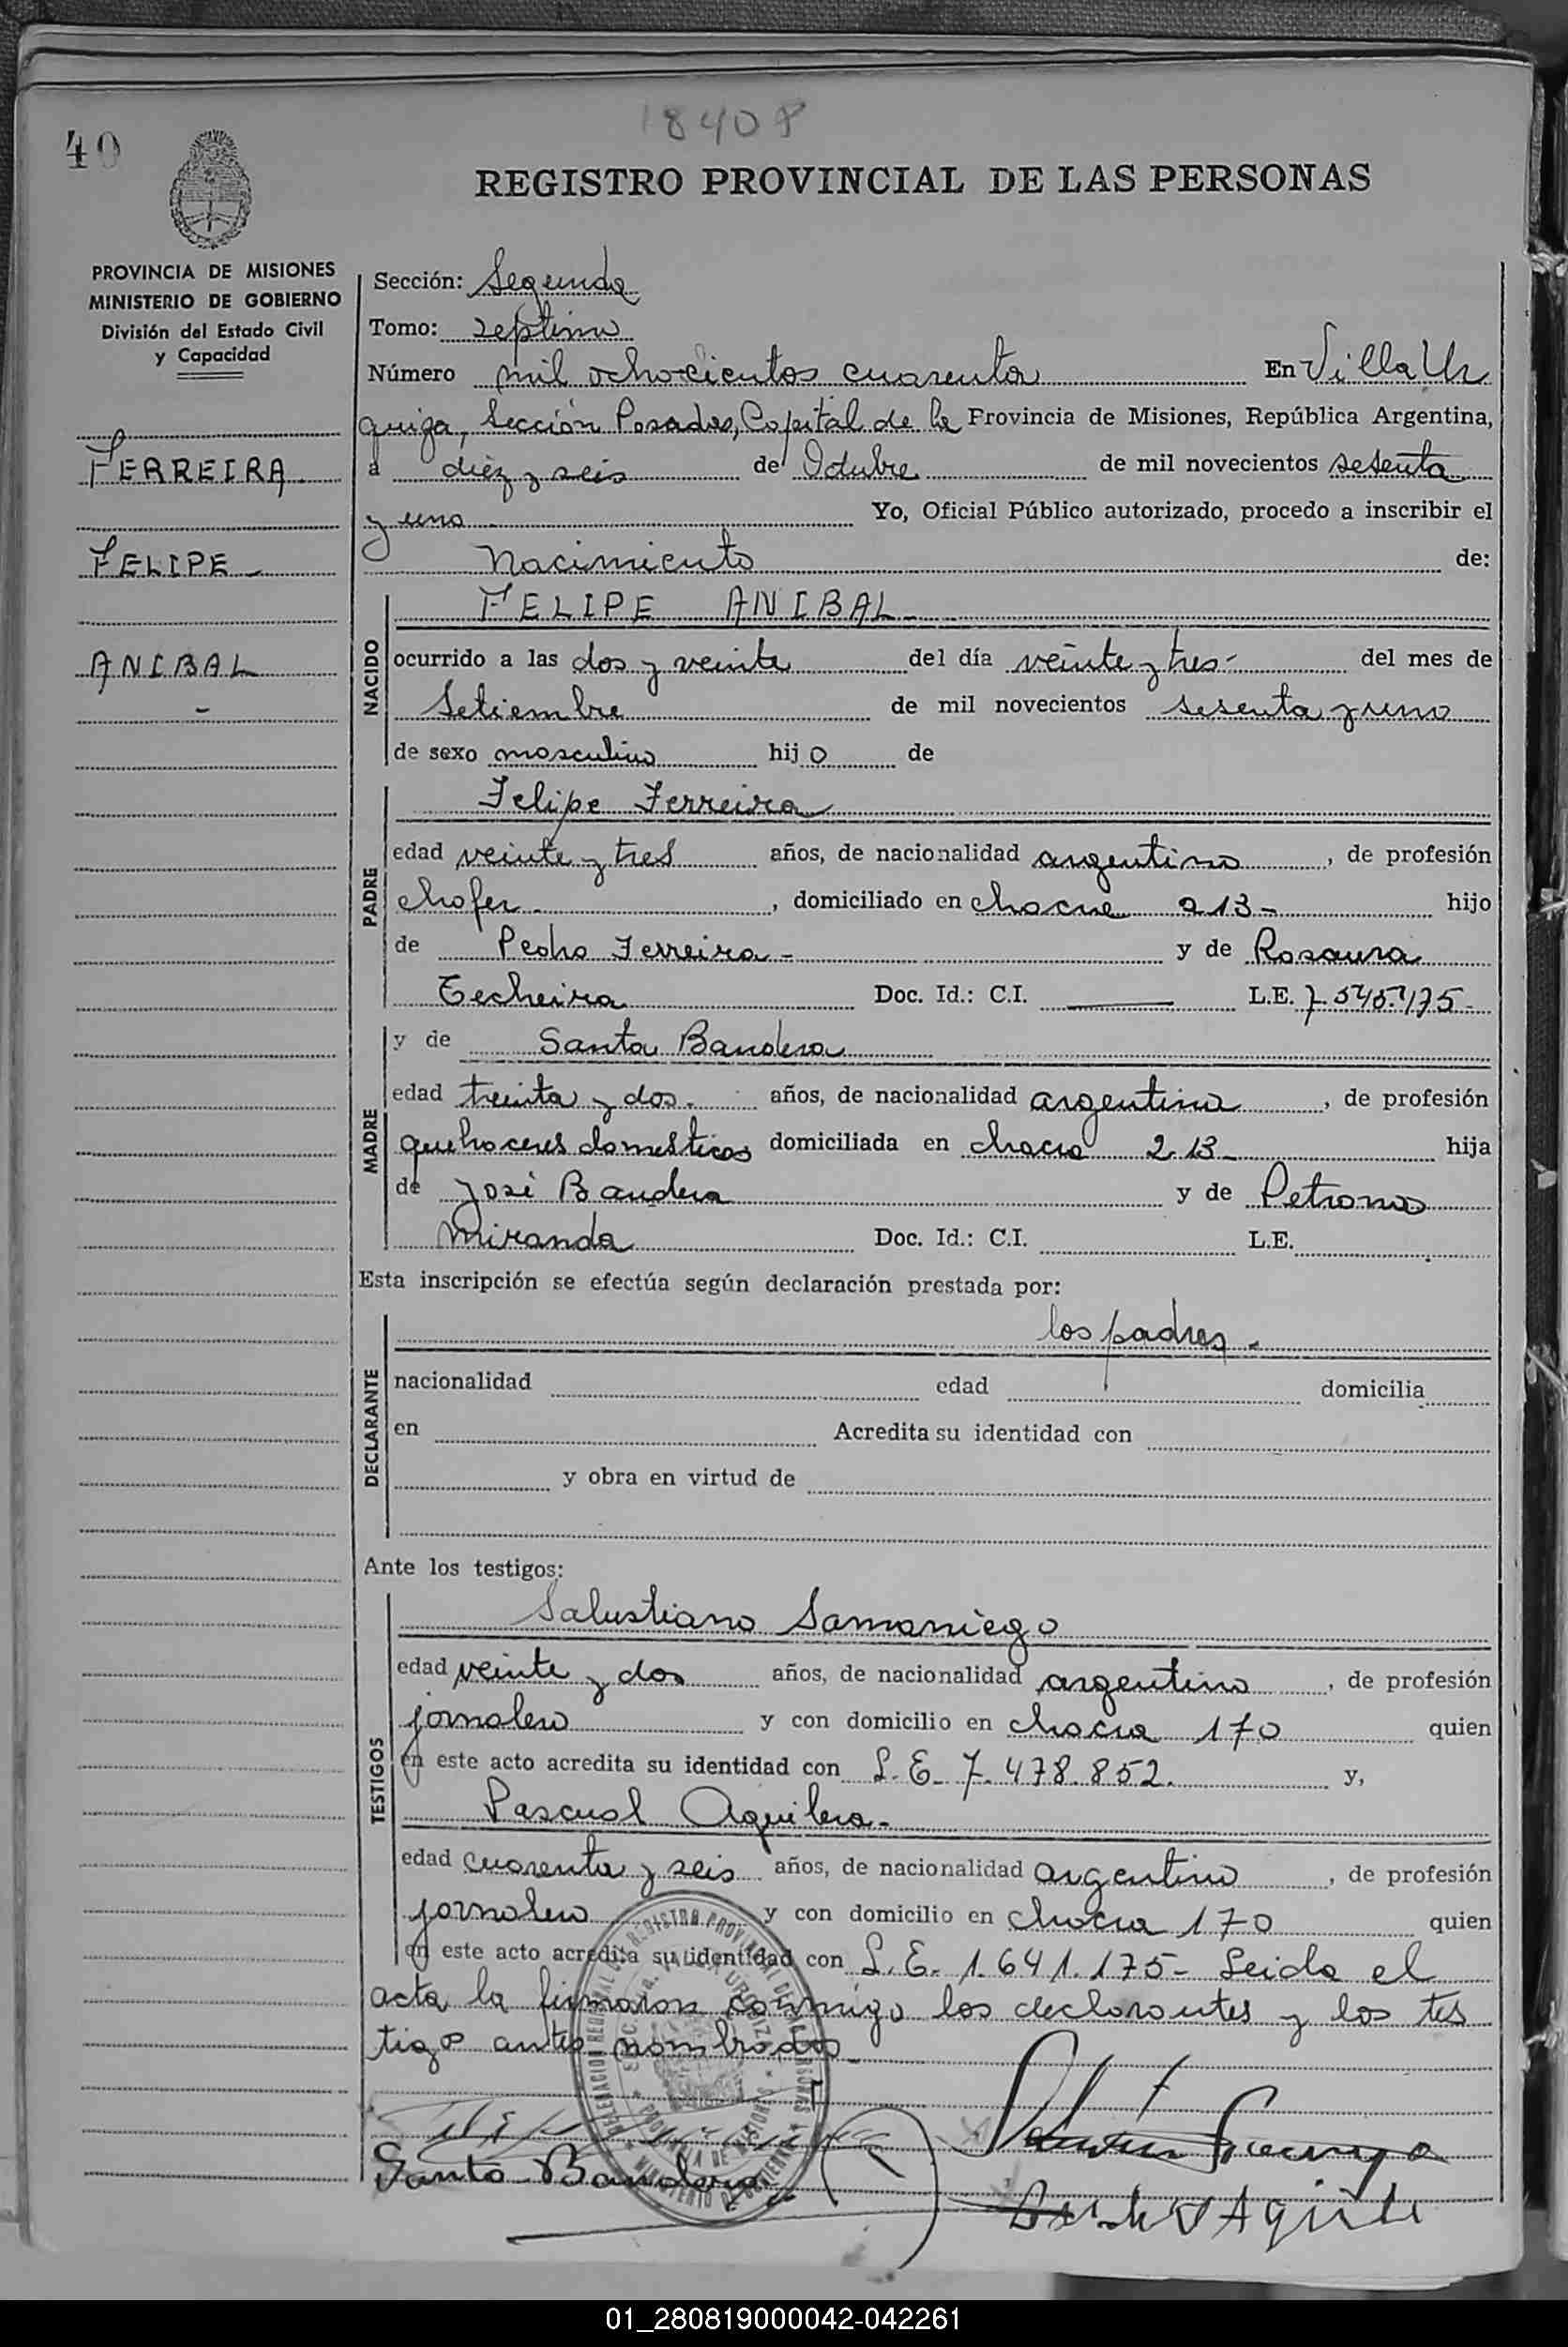 18408
40
REGISTRO PROVINCIAL DE LAS PERSONAS
PROVINCIA DE MISIONES
MINISTERIO DE GOBIERNO
División del Estado Civil
y Capacidad
FERREIRA
FELIPE
ANIBAL
Sección: Segunda
Tomo: septimo
Número mil ochocientos cuarenta En Villa Ur
quiza, Sección Posadas, Capital de la Provincia de Misiones, República Argentina,
a diez y seis de Octubre de mil novecientos sesenta
y uno Yo, Oficial Público autorizado, procedo a inscribir el
Nacimiento de:
NACIDO
FELIPE ANIBAL
ocurrido a las dos y veinte del día veinte y tres- del mes de
Setiembre de mil novecientos sesenta y uno
de sexo masculino hijo de
PADRE
Felipe Ferreira
edad veinte y tres años, de nacionalidad argentino, de profesión
chofer, domiciliado en chacra 213- hijo
de Pedro Ferreira- y de Rosaura
Techeira Doc. Id.: C.I. L.E. 7.545.175-
MADRE
y de Santa Bandera
edad treinta y dos. años, de nacionalidad argentina, de profesión
quehaceres domesticos domiciliada en chacra 213- hija
de José Bandera y de Petrona
Miranda Doc. Id.: C.I. L.E.
Esta inscripción se efectúa según declaración prestada por:
DECLARANTE
los padres-
nacionalidad edad domicilia
en Acredita su identidad con
y obra en virtud de
Ante los testigos:
TESTIGOS
Salustiano Samaniego
edad veinte y dos años, de nacionalidad argentino, de profesión
jornalero y con domicilio en chacra 170 quien
en este acto acredita su identidad con L.E. 7.478.852. y,
Pascual Aquilera-
edad cuarenta y seis años, de nacionalidad argentino, de profesión
jornalero y con domicilio en chacra 170 quien
en este acto acredita su identidad con L.E. 1.641.175- Leida el
acta la firmaron conmigo los declarantes y los tes
tigos antes nombrados-
Santa Bandera
01_280819000042-042261